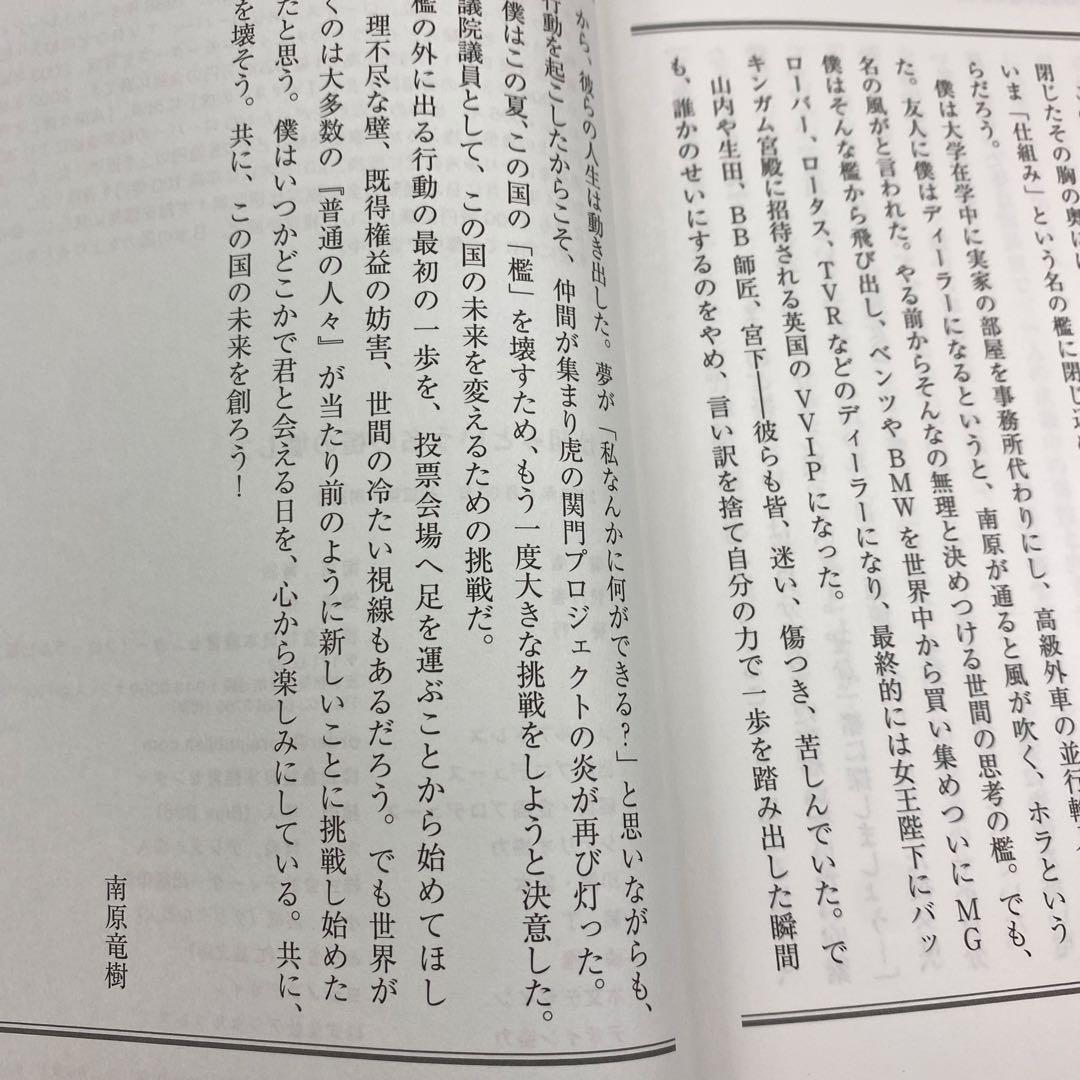 閉じたその胸の奥に
いま「仕組み」という名の檻に閉じ
らだろう。
僕は大学在学中に実家の部屋を事務所代わりにし、高級外車の並行輸
た。友人に僕はディーラーになるというと、南原が通ると風が吹く、ホラという
名の風がと言われた。やる前からそんなの無理と決めつける世間の思考の檻。でも、
僕はそんな檻から飛び出し、ベンツやBMWを世界中から買い集めついにMG
ローバー、ロータス、TVRなどのディーラーになり、最終的には女王陛下にバッ
キンガム宮殿に招待される英国のVVIPになった。
山内や生田、BB師匠、宮下――彼らも皆、迷い、傷つき、苦しんでいた。で
も、誰かのせいにするのをやめ、言い訳を捨て自分の力で一歩を踏み出した瞬間
から、彼らの人生は動き出した。夢が「私なんかに何ができる?」と思いながらも、
行動を起こしたからこそ、仲間が集まり虎の関門プロジェクトの炎が再び灯った。
僕はこの夏、この国の「檻」を壊すため、もう一度大きな挑戦をしようと決意した。
議院議員として、この国の未来を変えるための挑戦だ。
檻の外に出る行動の最初の一歩を、投票会場へ足を運ぶことから始めてほし
理不尽な壁、既得権益の妨害、世間の冷たい視線もあるだろう。でも世界が
くのは大多数の『普通の人々』が当たり前のように新しいことに挑戦し始めた
だと思う。僕はいつかどこかで君と会える日を、心から楽しみにしている。共に、
を壊そう。共に、この国の未来を創ろう!
南原竜樹